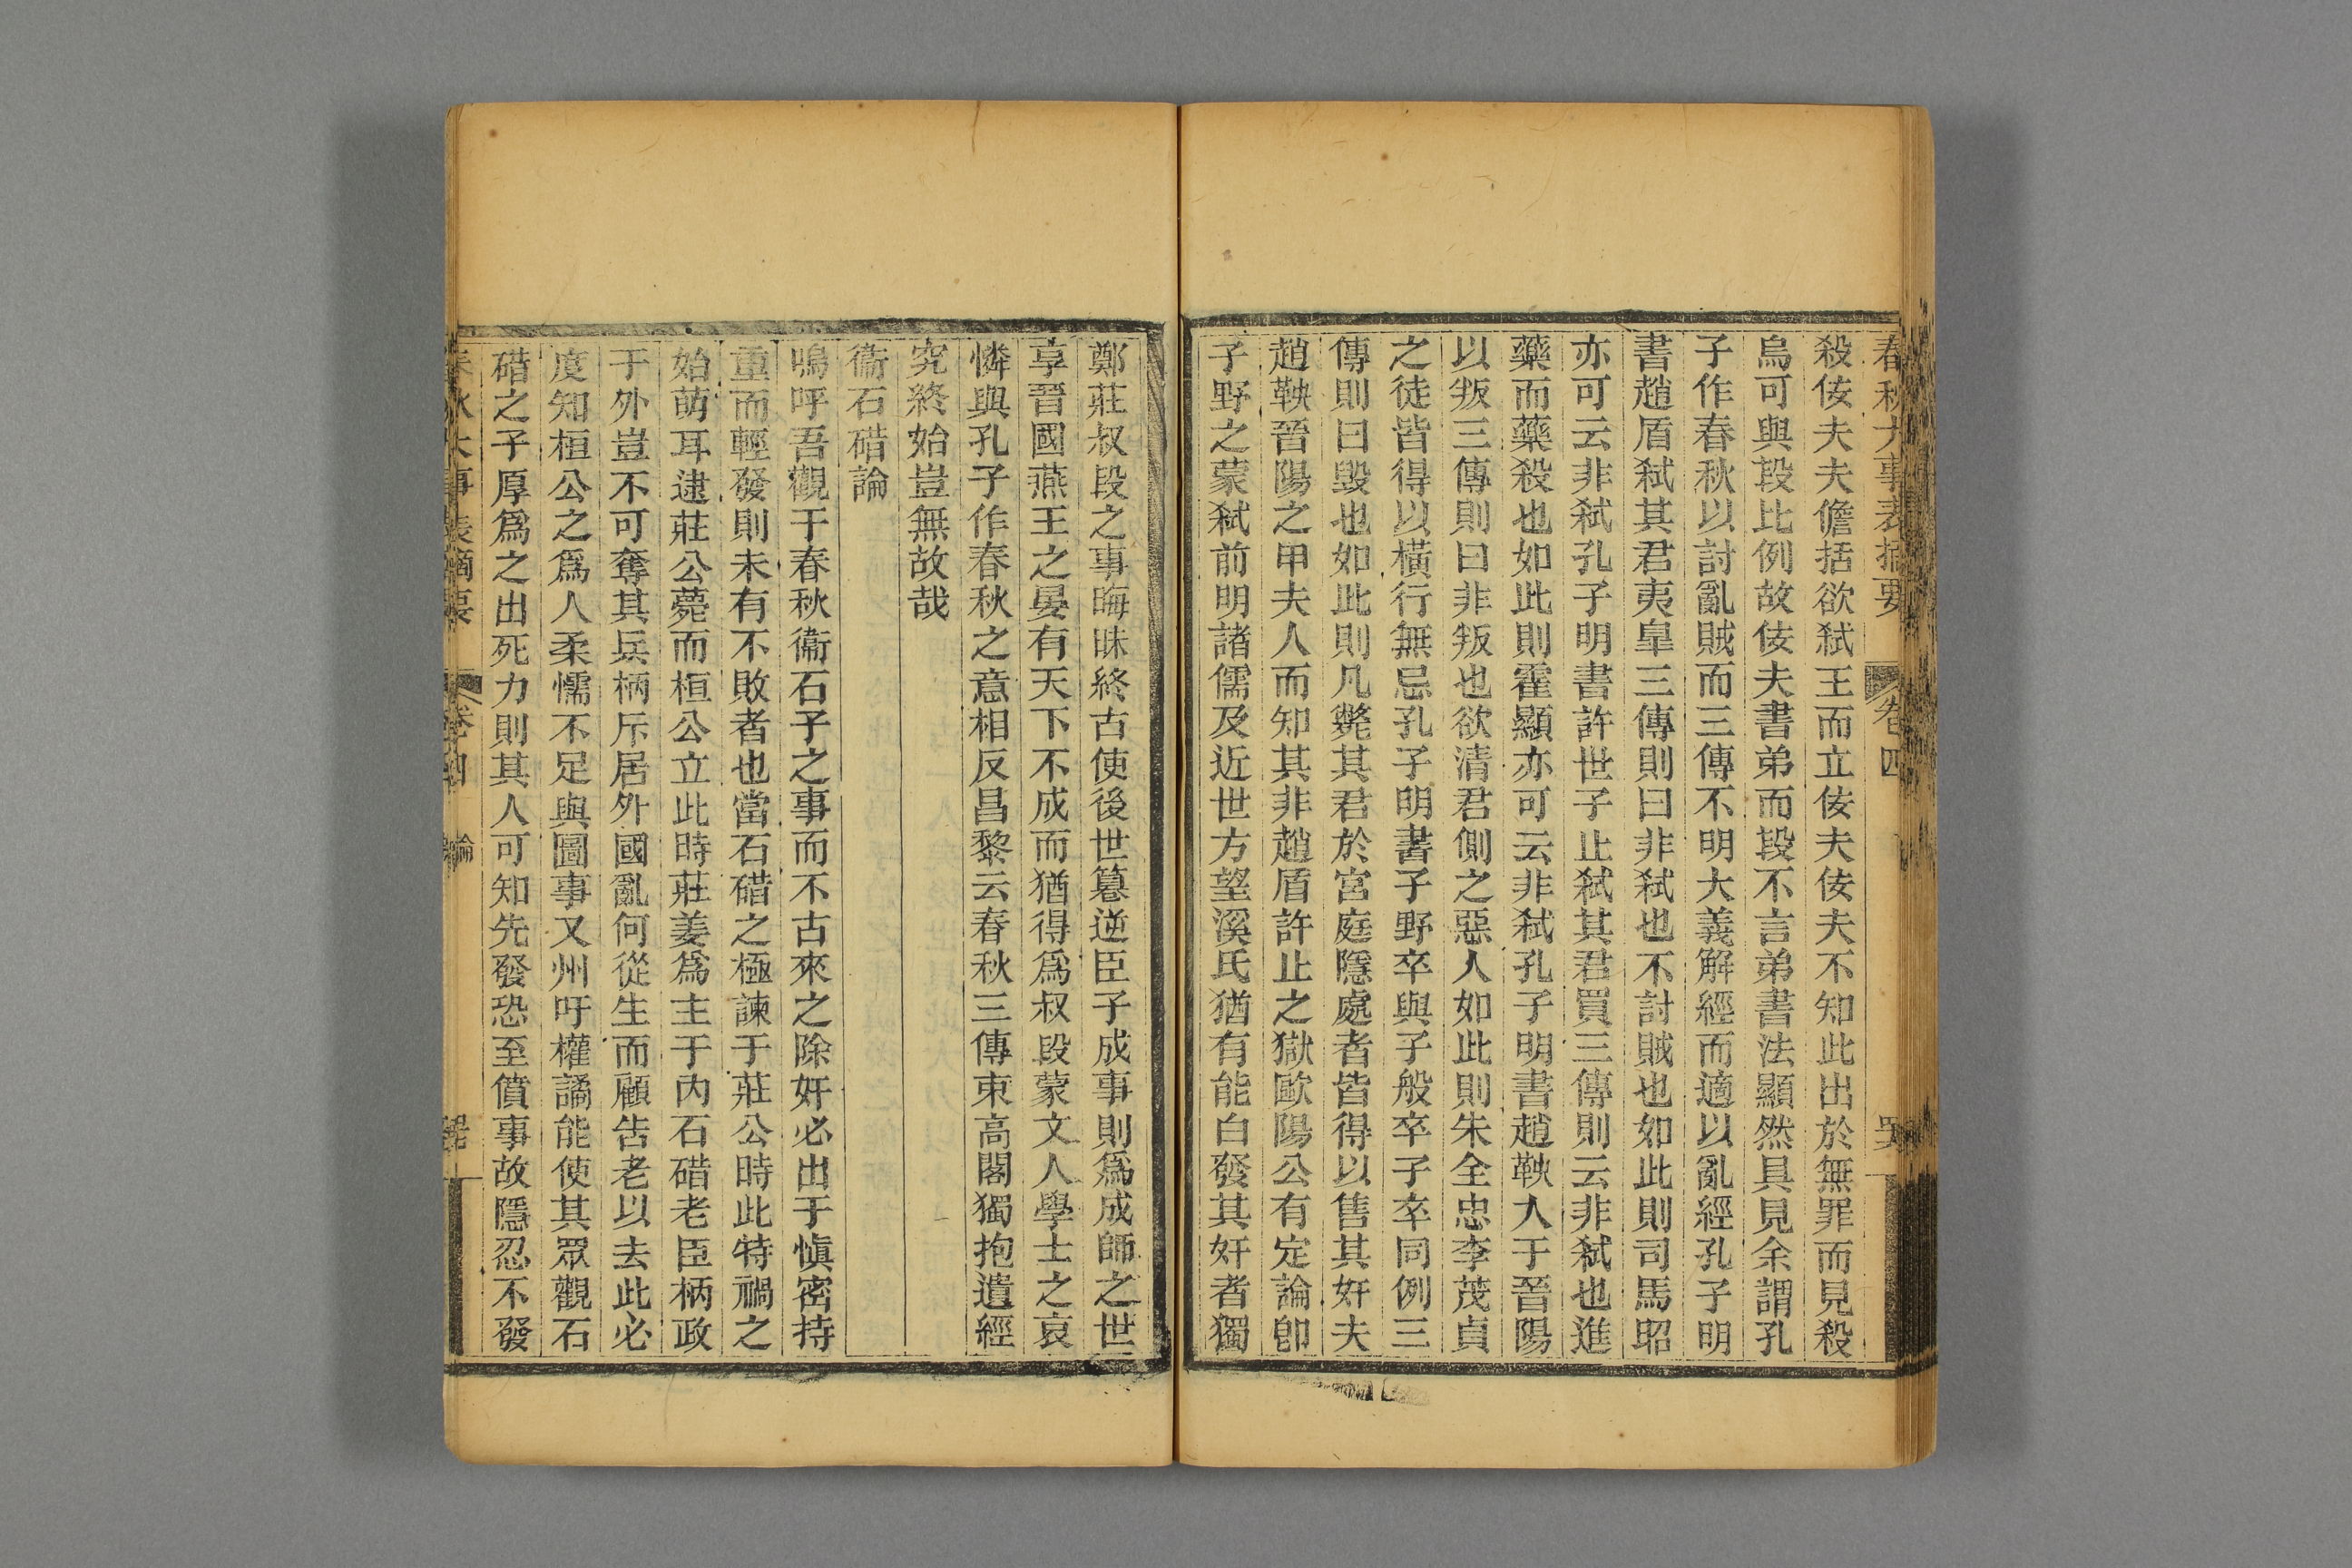 春秋大事表摘要 卷四 哭
殺佞夫夫儋括欲弑王而立佞夫佞夫不知此出於無罪而見殺
烏可與段比例故佞夫書弟而段不言弟書法顯然具見余謂孔
子作春秋以討亂賊而三傳不明大義解經而適以亂經孔子明
書趙盾弑其君夷皐三傳則曰非弑也不討賊也如此則司馬昭
亦可云非弑孔子明書許世子止弑其君買三傳則云非弑也進
藥而藥殺也如此則霍顯亦可云非弑孔子明書趙鞅入于晉陽
以叛三傳則曰非叛也欲清君側之惡人如此則朱全忠李茂貞
之徒皆得以橫行無忌孔子明書子野卒與子般卒子卒同例三
傳則曰毀也如此則凡斃其君於宮庭隱處者皆得以售其奸夫
趙鞅晉陽之甲夫人而知其非趙盾許止之獄歐陽公有定論卽
子野之蒙弑前明諸儒及近世方望溪氏猶有能白發其奸者獨
鄭莊叔段之事晦昧終古使後世簒逆臣子成事則爲成師之世
享晉國燕王之晏有天下不成而猶得爲叔段蒙文人學士之哀
憐與孔子作春秋之意相反昌黎云春秋三傳束高閣獨抱遺經
究終始豈無故哉
衞石碏論
嗚呼吾觀于春秋衞石子之事而不古來之除奸必出于愼密持
重而輕發則未有不敗者也當石碏之極諫于莊公時此特禍之
始萌耳逮莊公薨而桓公立此時莊姜爲主于內石碏老臣柄政
于外豈不可奪其兵柄斥居外國亂何從生而顧告老以去此必
度知桓公之爲人柔懦不足與圖事又州吁權譎能使其眾觀石
碏之子厚爲之出死力則其人可知先發恐至僨事故隱忍不發
春秋大事表摘要 卷四 論